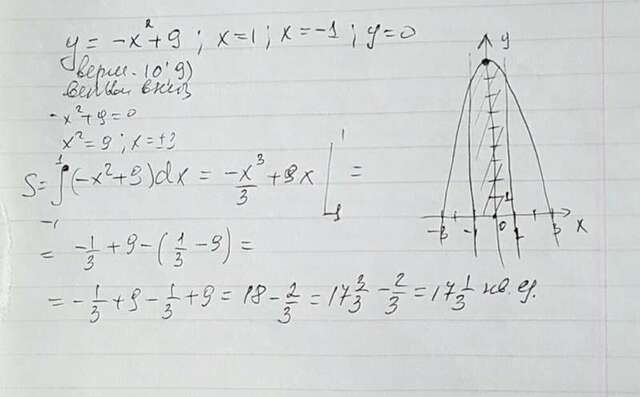 y = -x² + 9 ; x = 1 ; x = -1 ; y = 0
верш. (0; 9)
ветви вниз
-x² + 9 = 0
x² = 9 ; x = ±3
S = ∫₋₁¹ (-x² + 9) dx = -x³/3 + 9x |₋₁¹ =
= -1/3 + 9 - (1/3 - 9) =
= -1/3 + 9 - 1/3 + 9 = 18 - 2/3 = 17 3/3 - 2/3 = 17 1/3 кв. ед.
y
1
-3 -1 0 1 3 x